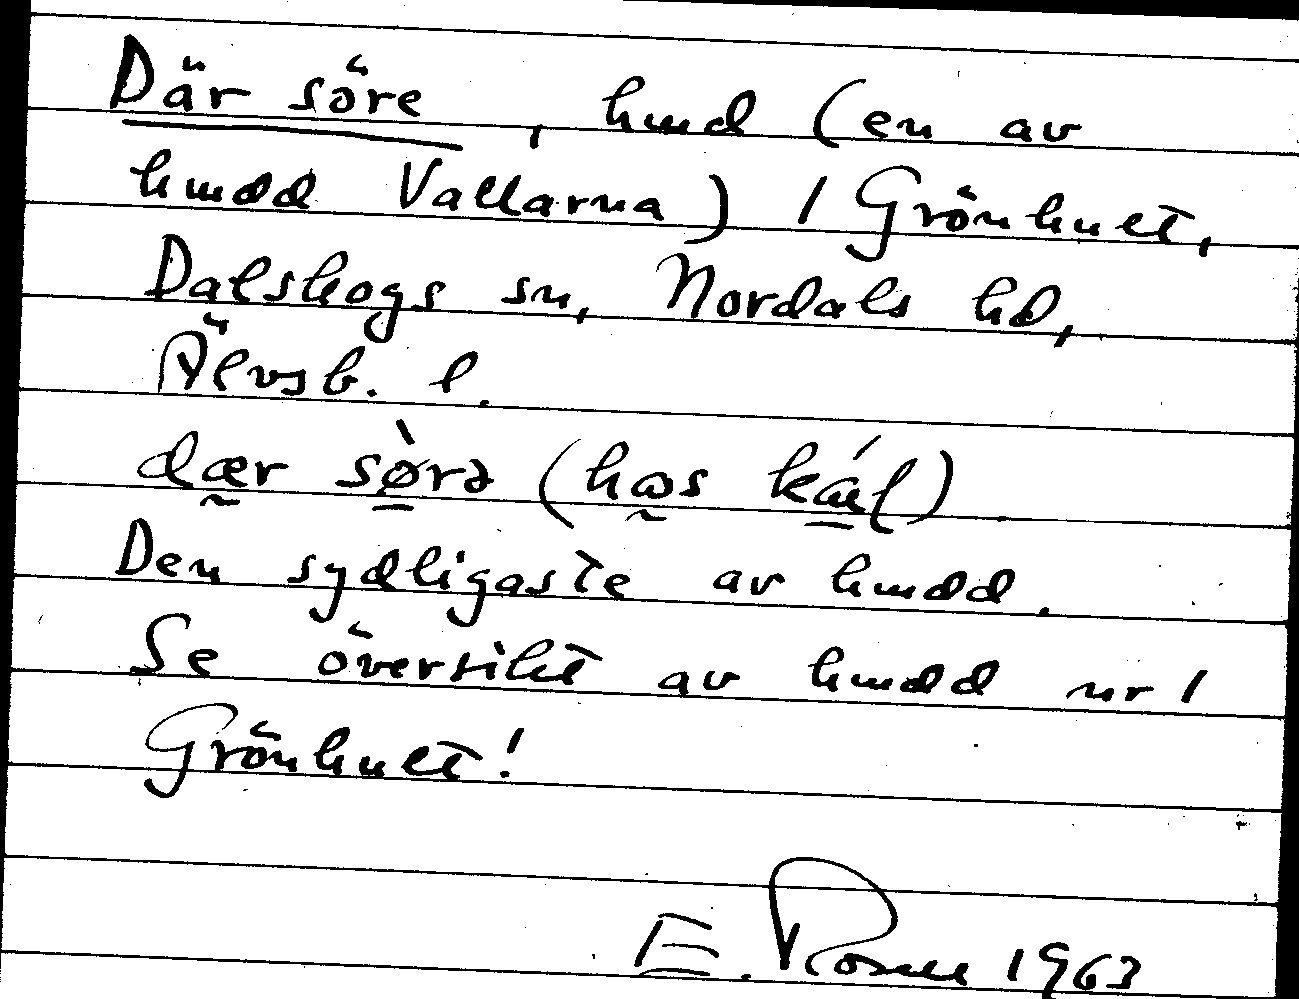 Där söre, hmd (en av
hmdd Vallarna) / Grönhult,
Dalskogs sn, Nordals hd,
Älvsb. l.
dær sø̀rə (hɷs ká̱l)
Den sydligaste av hmdd.
Se översikt av hmdd ur /
Grönhult!
E. Rosell 1963